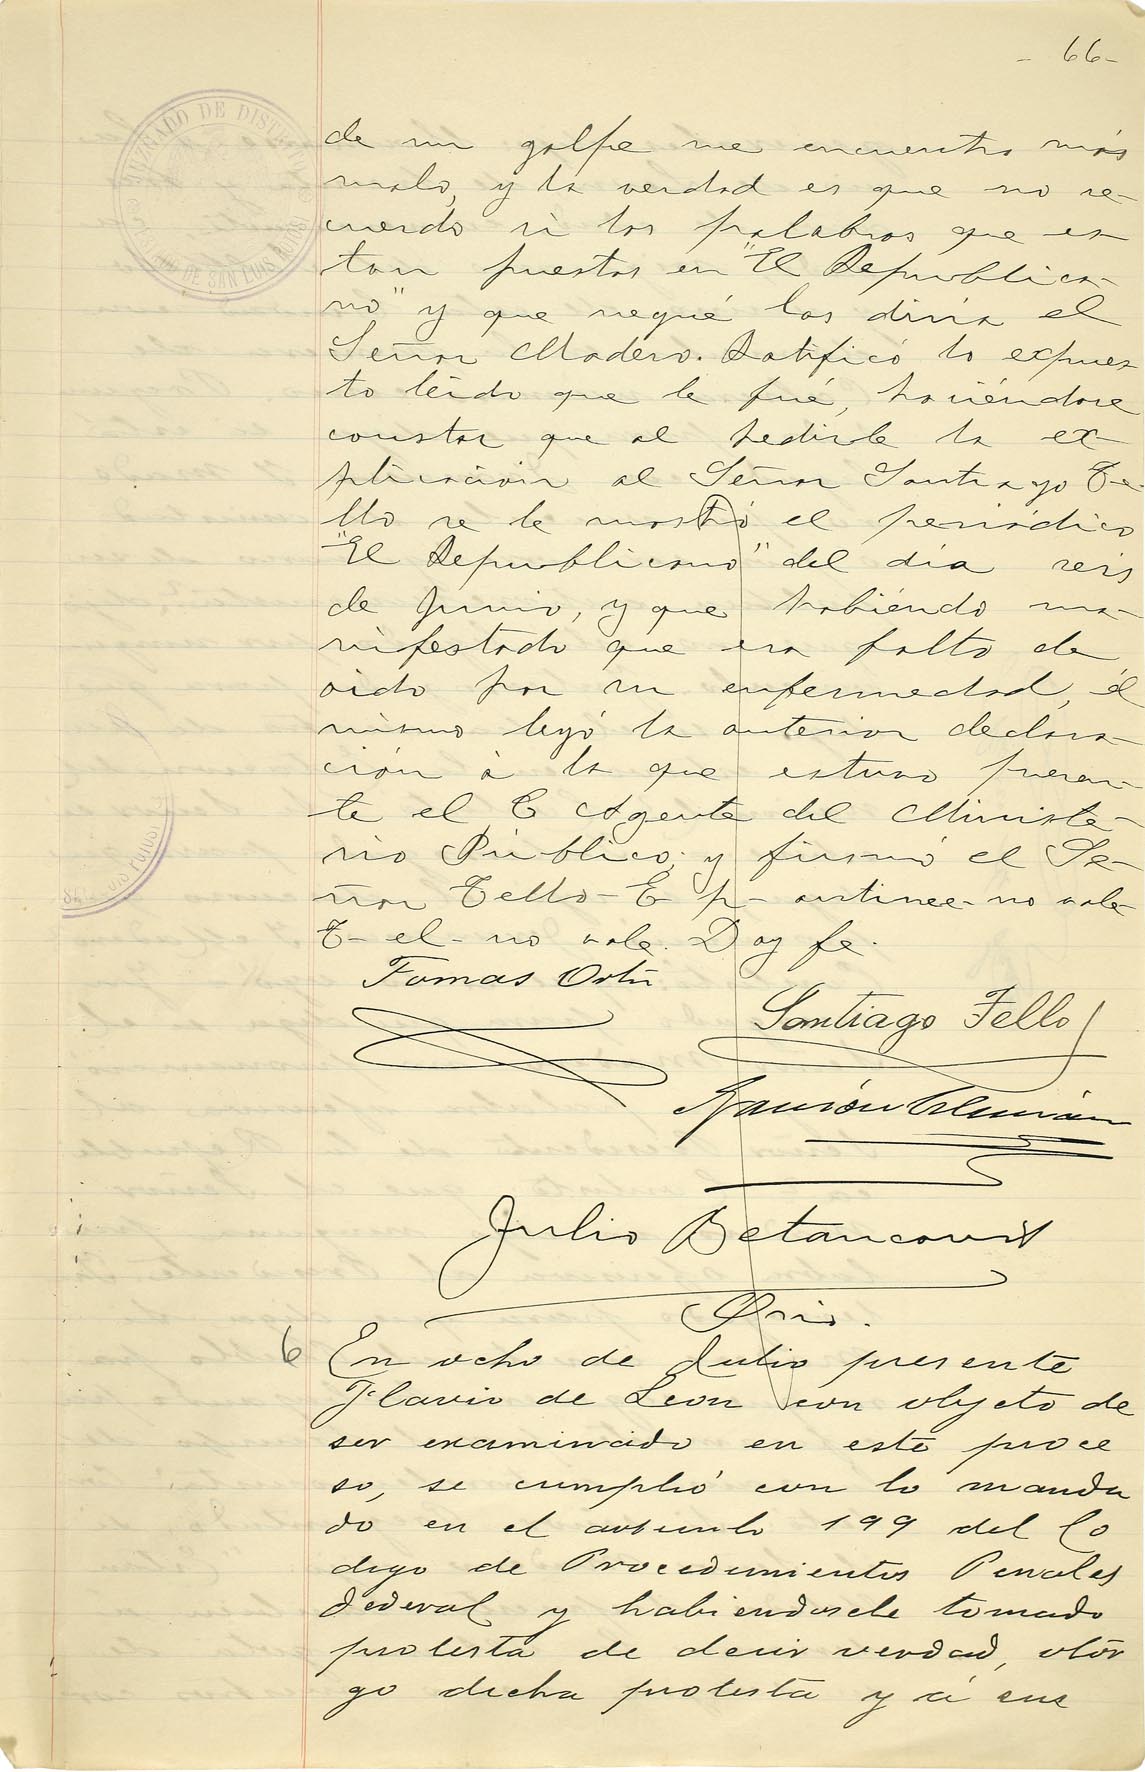 - 66 -
JUZGADO DE DISTRITO
DE SAN LUIS POTOSI
de un golpe me encuentro más
malo, y la verdad es que no re-
cuerdo si las palabras que es
tan puestas en "El Republica-
no" y que negué las diria el
Señor Madero. Ratificó lo expues
to leido que le fué, haciéndose
constar que al pedirle la ex-
plicación al Señor Santiago Te-
llo se le mostró el periódico
"El Republicano" del dia seis
de Junio, y que habiendo ma-
nifestado que era falto de
oido por su enfermedad, él
mismo leyó la anterior declara-
ción á la que estuvo presen-
te el C Agente del Ministe-
rio Público; y firmó el Se-
ñor Tello - E p- no vale-
T- el- no vale. Doy fe.
Tomas Ortiz
Santiago Tello
Ramón Alemán
Julio Betancourt
Srio.
6 En ocho de Julio presente
Flavio de Leon con objeto de
ser examinado en este proce
so, se cumplió con lo manda
do en el articulo 199 del Co
digo de Procedimientos Penales
Federal y habiendosele tomado
protesta de decir verdad, otor
go dicha protesta y á sus
SAN LUIS POTOSI